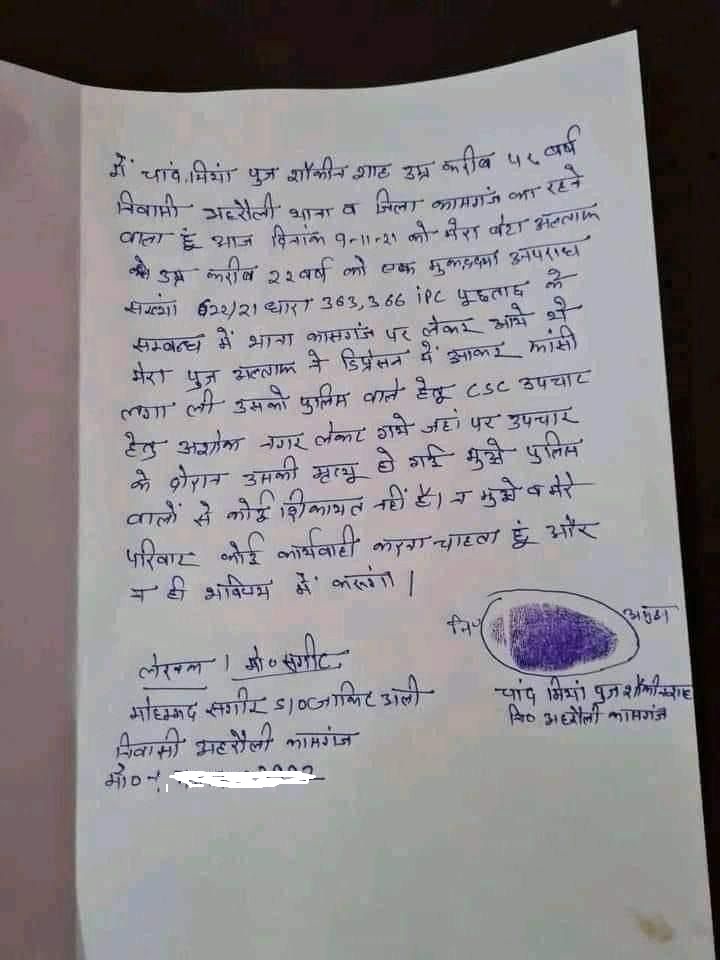 में चांद मियां पुत्र शौकीन शाह उम्र करीब 5६ वर्ष
निवासी अहरौली थाना व जिला कासगंज का रहने
वाला हूं आज दिनांक 9-11-21 को मेरा बेटा अल्ताफ
उम्र करीब 22 वर्ष को एक मुकदमा अपराध
संख्या 622/21 धारा 363, 366 IPC पूछताछ के
सम्बन्ध में थाना कासगंज पर लेकर आये थे
मेरा पुत्र अल्ताफ ने डिप्रेसन में आकर फांसी
लगा ली उसको पुलिस वाले हेतू CSC उपचार
हेतु अशोक नगर लेकर गये जहां पर उपचार
के दौरान उसकी मृत्यू हो गई मुझे पुलिस
वालों से कोई शिकायत नहीं है। न मुझे व मेरे
परिवार कोई कार्यवाही करना चाहता हूं और
न ही भविष्य में करूंगा।
नि० अंगूठा
चांद मियां पुत्र शौकीन शाह
नि० अहरौली कासगंज
लेखक। मो० सगीर
मोहम्मद सगीर S/O जाकिर अली
निवासी अहरौली कासगंज
मो० नं.